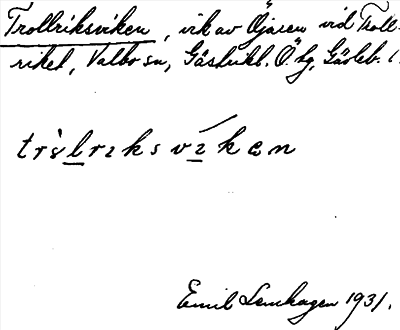 Trollriksviken, vik av Öjaren vid Troll-
riket, Valbo sn, Gästrikl. Ö. tg, Gävleb. l.
trò̀lrıksvíkən
Emil Lenhagen 1931.